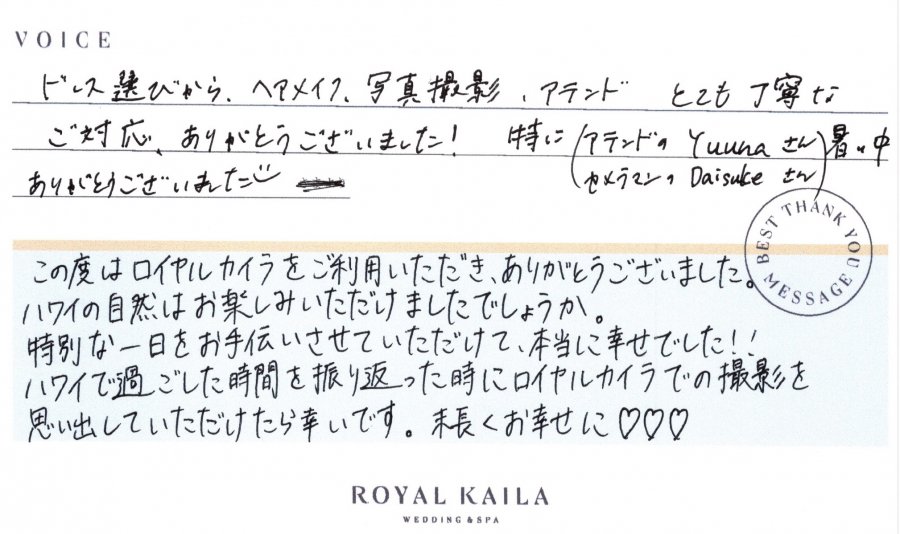 VOICE
ドレス選びから、ヘアメイク、写真撮影、アテンド とても丁寧な
ご対応、ありがとうございました! 特に (アテンドの Yuunaさん
カメラマンの Daisukeさん) 暑い中
ありがとうございました
BEST THANK YOU MESSAGE
この度はロイヤルカイラをご利用いただき、ありがとうございました。
ハワイの自然はお楽しみいただけましたでしょうか。
特別な一日をお手伝いさせていただけて、本当に幸せでした!!
ハワイで過ごした時間を振り返った時にロイヤルカイラでの撮影を
思い出していただけたら幸いです。末長くお幸せに♡♡♡
ROYAL KAILA
WEDDING & SPA